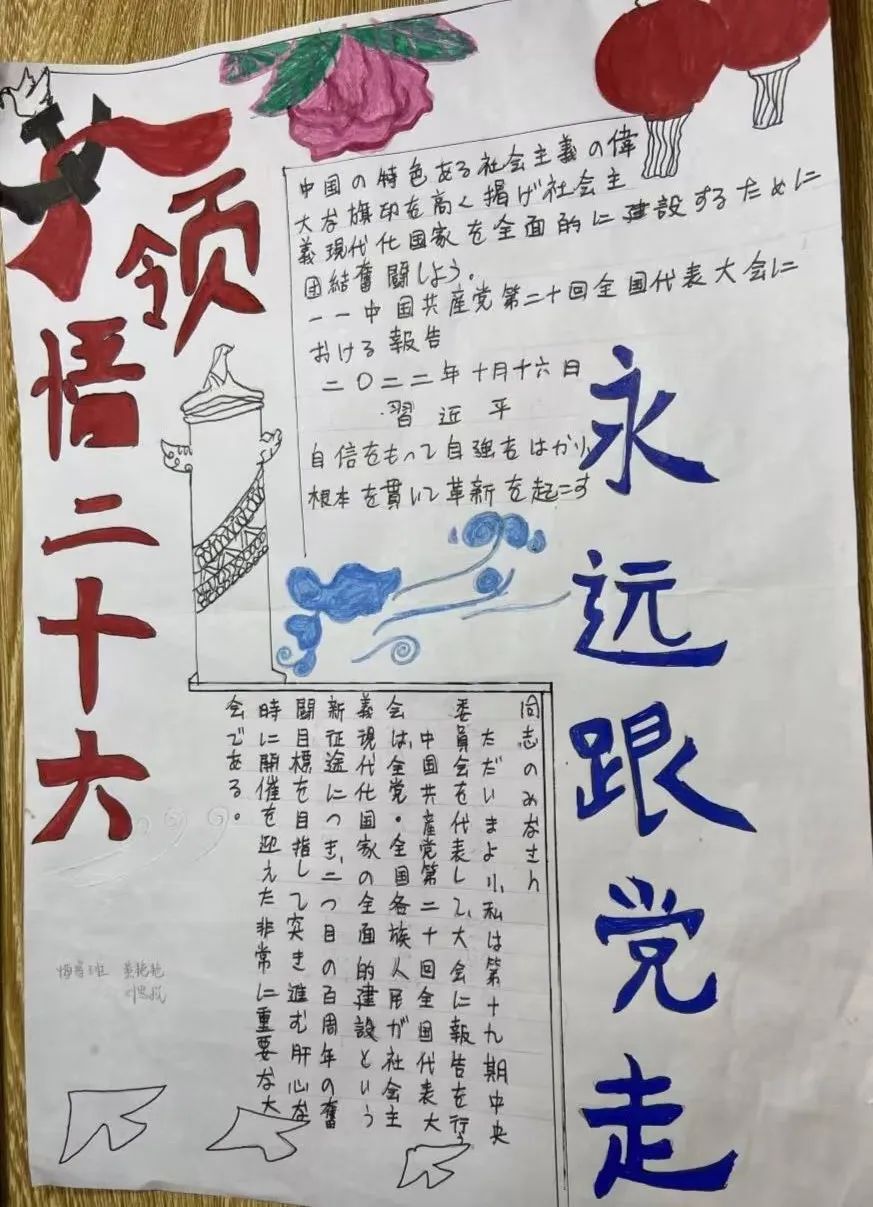 领悟二十六
中国の特色ある社会主義の偉
大な旗印を高く掲げ社会主
義現代化国家を全面的に建設するために
団結奮闘しよう。
ーー中国共産党第二十回全国代表大会に
おける報告
二〇二二年十月十六日
習近平
自信をもって自強をはかり
根本を貫いて革新を起こす
永远跟党走
同志のみなさん
ただいまより、私は第十九期中央
委員会を代表して、大会に報告を行う
中国共産党第二十回全国代表大
会は、全党・全国各族人民が社会主
義現代化国家の全面的建設という
新征途につき、二つ目の百周年の奮
闘目標を目指して突き進む肝心な
時に開催を迎えた非常に重要な大
会である。